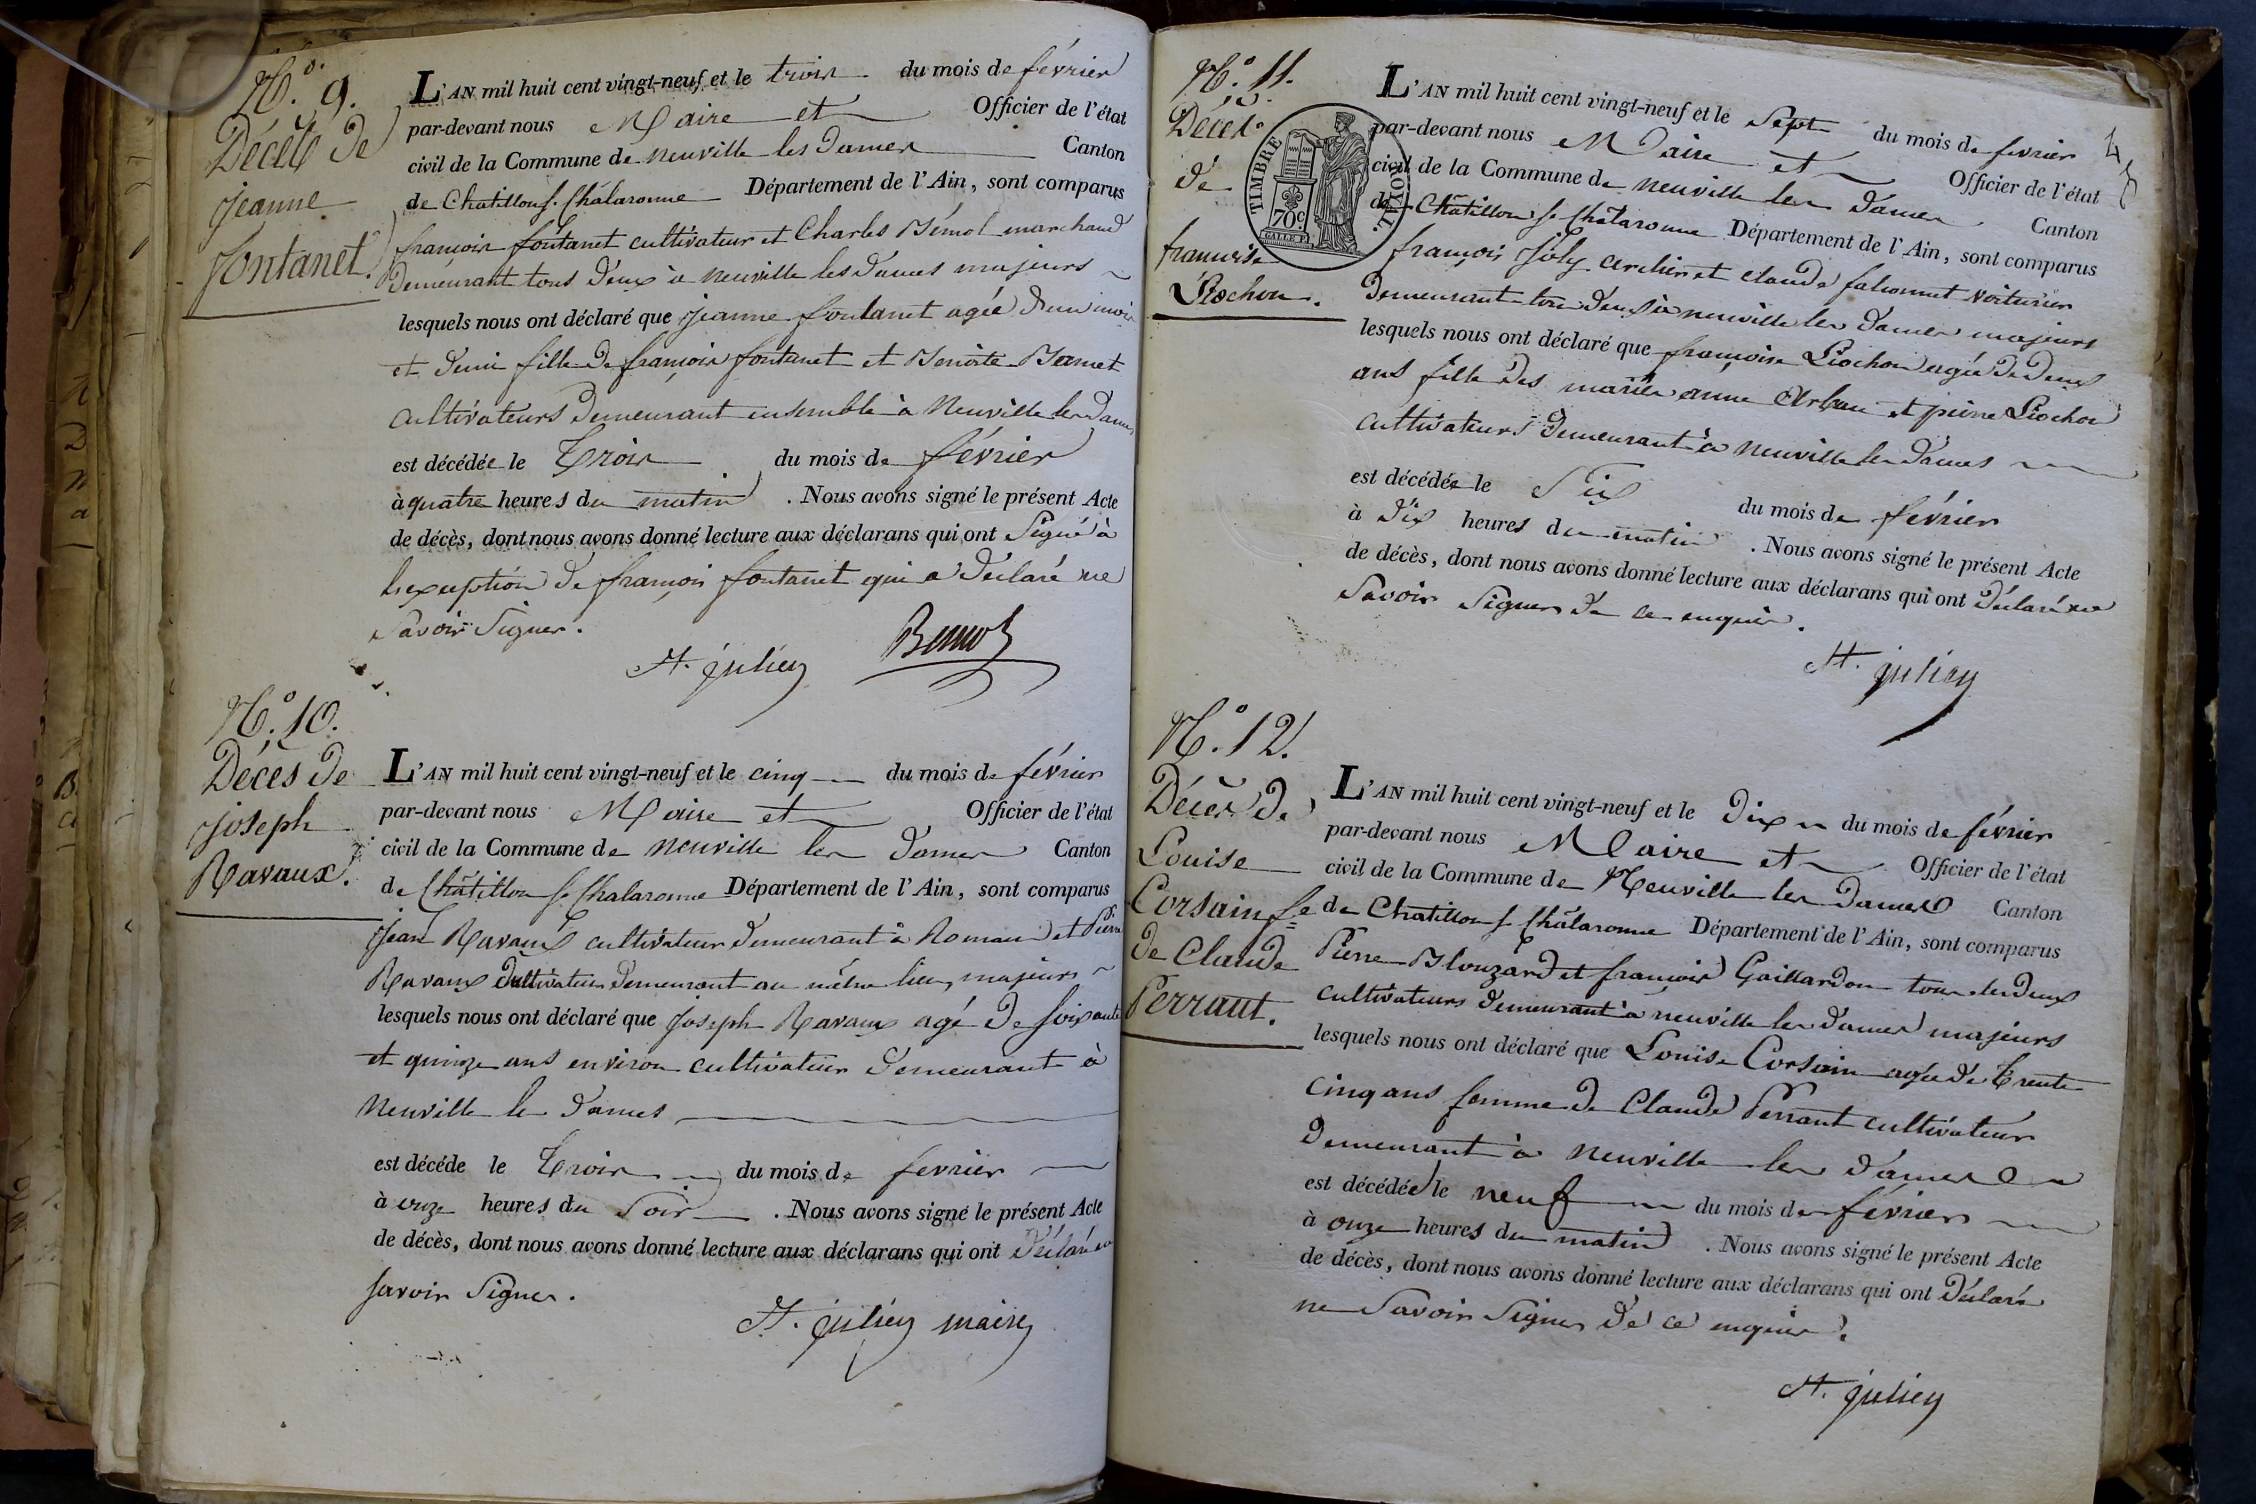 N.º 9.
Décès de
jeanne
fontanet.
L'AN mil huit cent vingt-neuf et le trois du mois de février
par-devant nous Maire et Officier de l'état
civil de la Commune de neuville les Dames Canton
de Chatillon s. Chalaronne Département de l'Ain, sont comparus
françois fontanet cultivateur et Charles Bémol marchand
demeurant tous deux à neuville les dames majeurs
lesquels nous ont déclaré que jeanne fontanet agée d'un mois
et demi fille de françois fontanet et Benoite
cultivateurs demeurant ensemble à Neuville les Dames
est décédée le trois du mois de février
à quatre heures du matin . Nous avons signé le présent Acte
de décès, dont nous avons donné lecture aux déclarans qui ont signé à
l'exception de françois fontanet qui a déclaré ne
savoir signer.
St. julien
N.º 10.
Décès de
joseph
Ravaux.
L'AN mil huit cent vingt-neuf et le cinq du mois de février
par-devant nous Maire et Officier de l'état
civil de la Commune de neuville les dames Canton
de Châtillon s. Chalaronne Département de l'Ain, sont comparus
jean Ravaux cultivateur demeurant à Roman et Pierre
Ravaux cultivateur demeurant au même lieu, majeurs
lesquels nous ont déclaré que joseph Ravaux agé de soixante
et quinze ans environ cultivateur demeurant à
neuville les dames
est décéde le trois du mois de fevrier
à onze heures du soir . Nous avons signé le présent Acte
de décès, dont nous avons donné lecture aux déclarans qui ont déclaré ne
savoir signer.
St. julien maire
N.º 11.
Décès
de
francoise
Piochon.
TIMBRE ROYAL
70 c.
L'AN mil huit cent vingt-neuf et le sept du mois de fevrier
par-devant nous Maire et Officier de l'état
civil de la Commune de neuville les dames Canton
de Châtillon s. Châlaronne Département de l'Ain, sont comparus
françois joly et claude voiturier
demeurant tous deux à neuville les dames majeurs
lesquels nous ont déclaré que françoise Piochon agée de deux
ans fille des mariés anne et pierre Piochon
cultivateurs demeurant à neuville les dames
est décédée le six du mois de février
à dix heures du matin . Nous avons signé le présent Acte
de décès, dont nous avons donné lecture aux déclarans qui ont déclaré ne
savoir signer de ce enquis.
St. julien
N.º 12.
Décès de
Louise
Corsain fe
de Claude
Perraut.
L'AN mil huit cent vingt-neuf et le dix du mois de février
par-devant nous Maire et Officier de l'état
civil de la Commune de Neuville les Dames Canton
de Chatillon s. Châlaronne Département de l'Ain, sont comparus
Pierre Blouzard et françois Gaillardon tous les deux
cultivateurs demeurant à neuville les dames majeurs
lesquels nous ont déclaré que Louise Corsain agée de trente
cinq ans femme de Claude Perraut cultivateur
demeurant à neuville les dames
est décédée le neuf du mois de février
à onze heures du matin . Nous avons signé le présent Acte
de décès, dont nous avons donné lecture aux déclarans qui ont déclaré
ne savoir signer de ce enquis.
St. julien